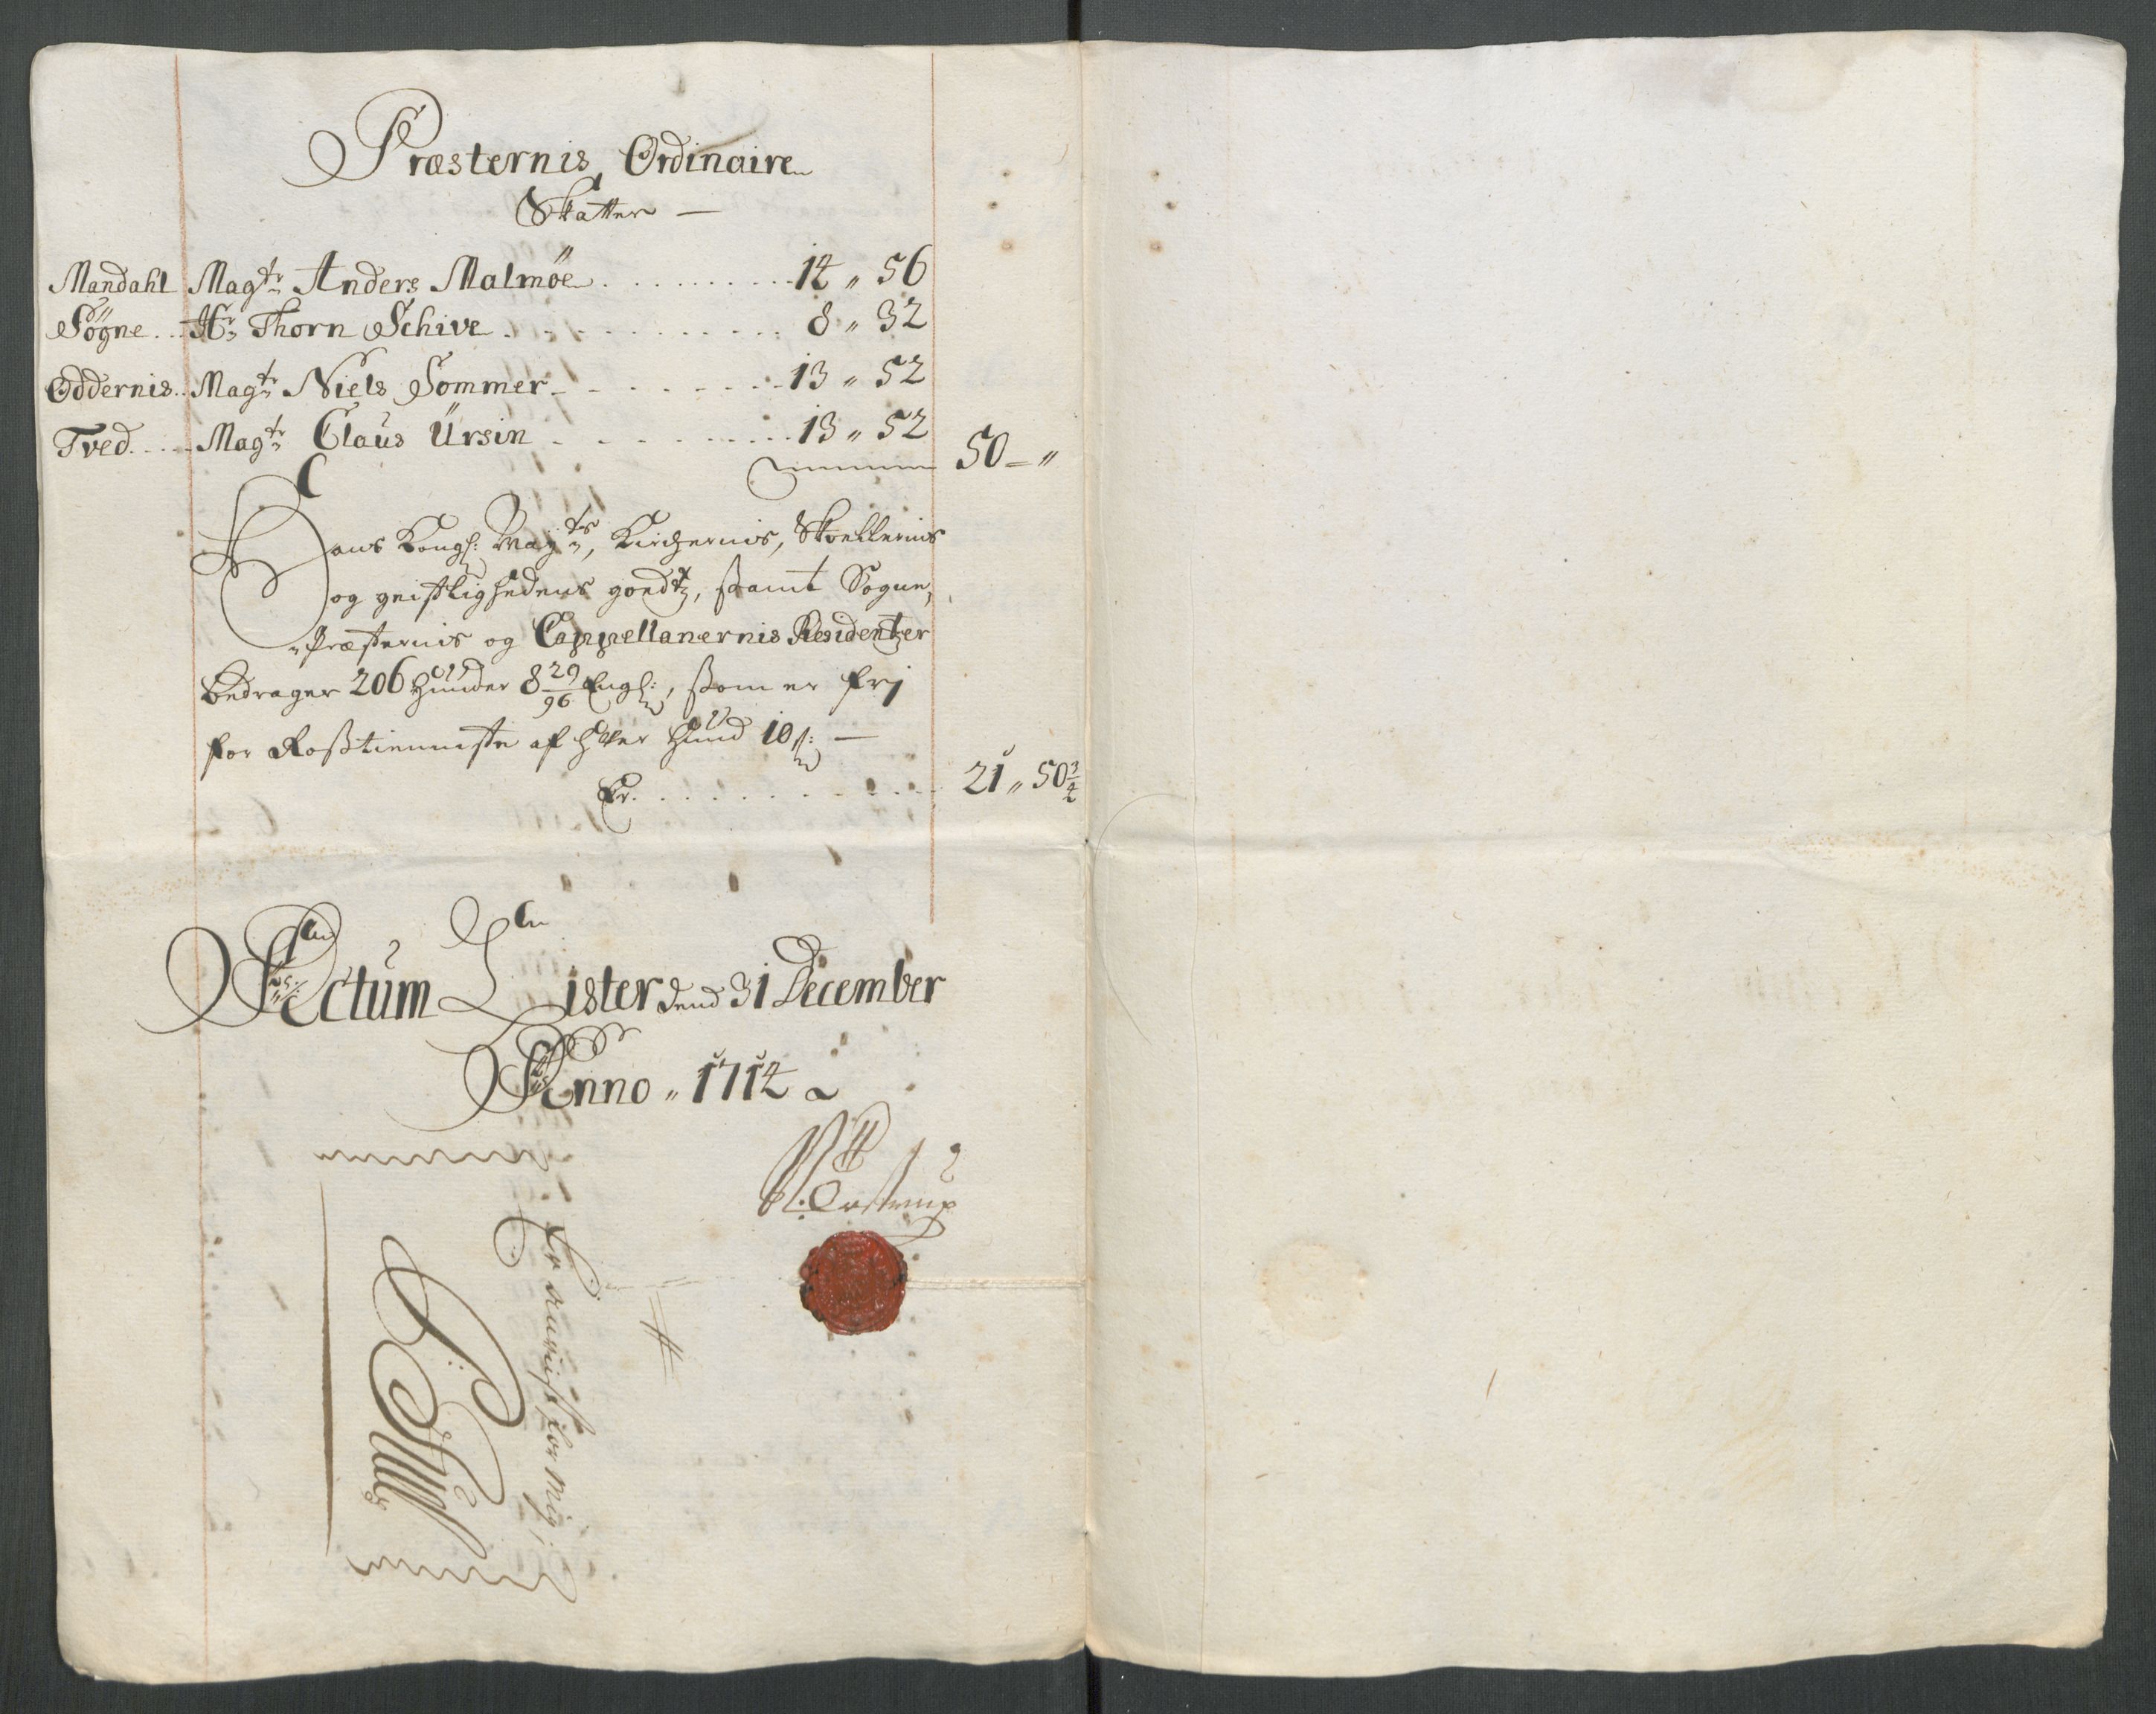 Præsternis Ordinaire
Skatter —
Mandahl Magtr Anders Malmöe . . . . . . . . . 14 „ 56
Sögne . . Hr Thorn Schive . . . . . . . . . . . 8 „ 32
Oddernis . . Magtr Niels Sommer . . . . . . . . 13 „ 52
Tved . . . . Magtr Claus Ursin . . . . . . . . . . 13 „ 52
50 – „
Hans Kongl: Mayts, Kirchernis, Skoellernis
og geistlighedens goedtz, samt Sogne„
„Præsternis og Cappellanernis Residentzer
bedrager 206 hunder 8 29/96 Engl:, som er frj
for Rosstienniste af hver hund 10 s: —
Er . . . . . . . . . . . . 21 „ 50 3/4
Actum Lister dend 31 December
Anno „ 1714
Er rigtig for mig;